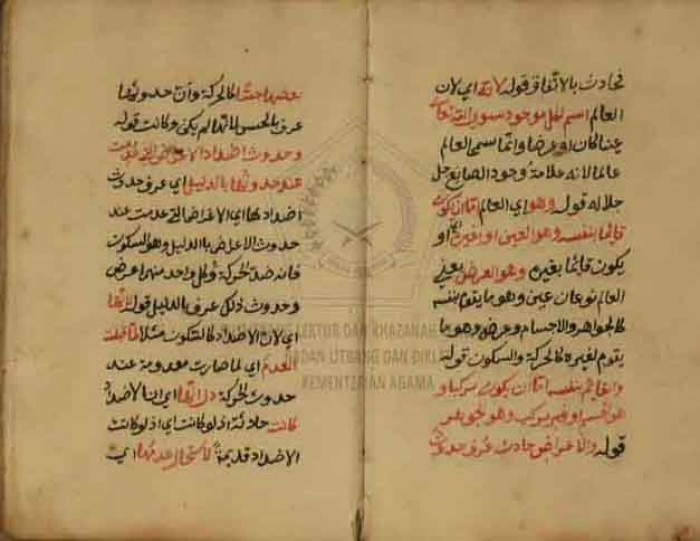 فحادث بالاتفاق قوله لانه اي لان
العالم اسم لكل موجود سوى الله تعالى
عينا كان او عرضا وانما سمي العالم
عالما لانه علامة وجود الصانع جل
جلاله قوله وهو اي العالم اما ان يكون
قائما بنفسه وهو العين او بغيره او
يكون قائما بغيره وهو العرض يعني
العالم نوعان عين وهو ما يقوم بنفسه
كالجواهر والاجسام وعرض وهو ما
يقوم لغيره كالحركة والسكون قوله
والقائم بنفسه اما ان يكون مركبا و
هو الجسم او غير مركب وهو الجوهر
قوله والاعراض حادث عرف حدوث
بعضها حسا كالحركة وان حدوثها
عرف بالحس لانها لم يكن وكانت قوله
وحدوث اضداد الاعراض التي عدمت
عند حدوثها بالدليل اي عرف حدوث
اضدادها اي الاعراض التي عدمت عند
حدوث الاعراض بالدليل وهو السكون
فانه ضد الحركة وكل واحد منهما عرض
وحدوث ذلك عرف بالدليل قوله لانها
اي لان الاضداد كالسكون مثلا لما قبلت
العدم اي لما صارت معدومة عند
حدوث الحركة دل انها اي ان الاضداد
كانت حادثة اذ لو كانت اي اذ لو كانت
الاضداد قديمة لاستحال عدمها اي
LEKTUR DAN KHAZANAH
BADAN LITBANG DAN DIKLAT
KEMENTERIAN AGAMA